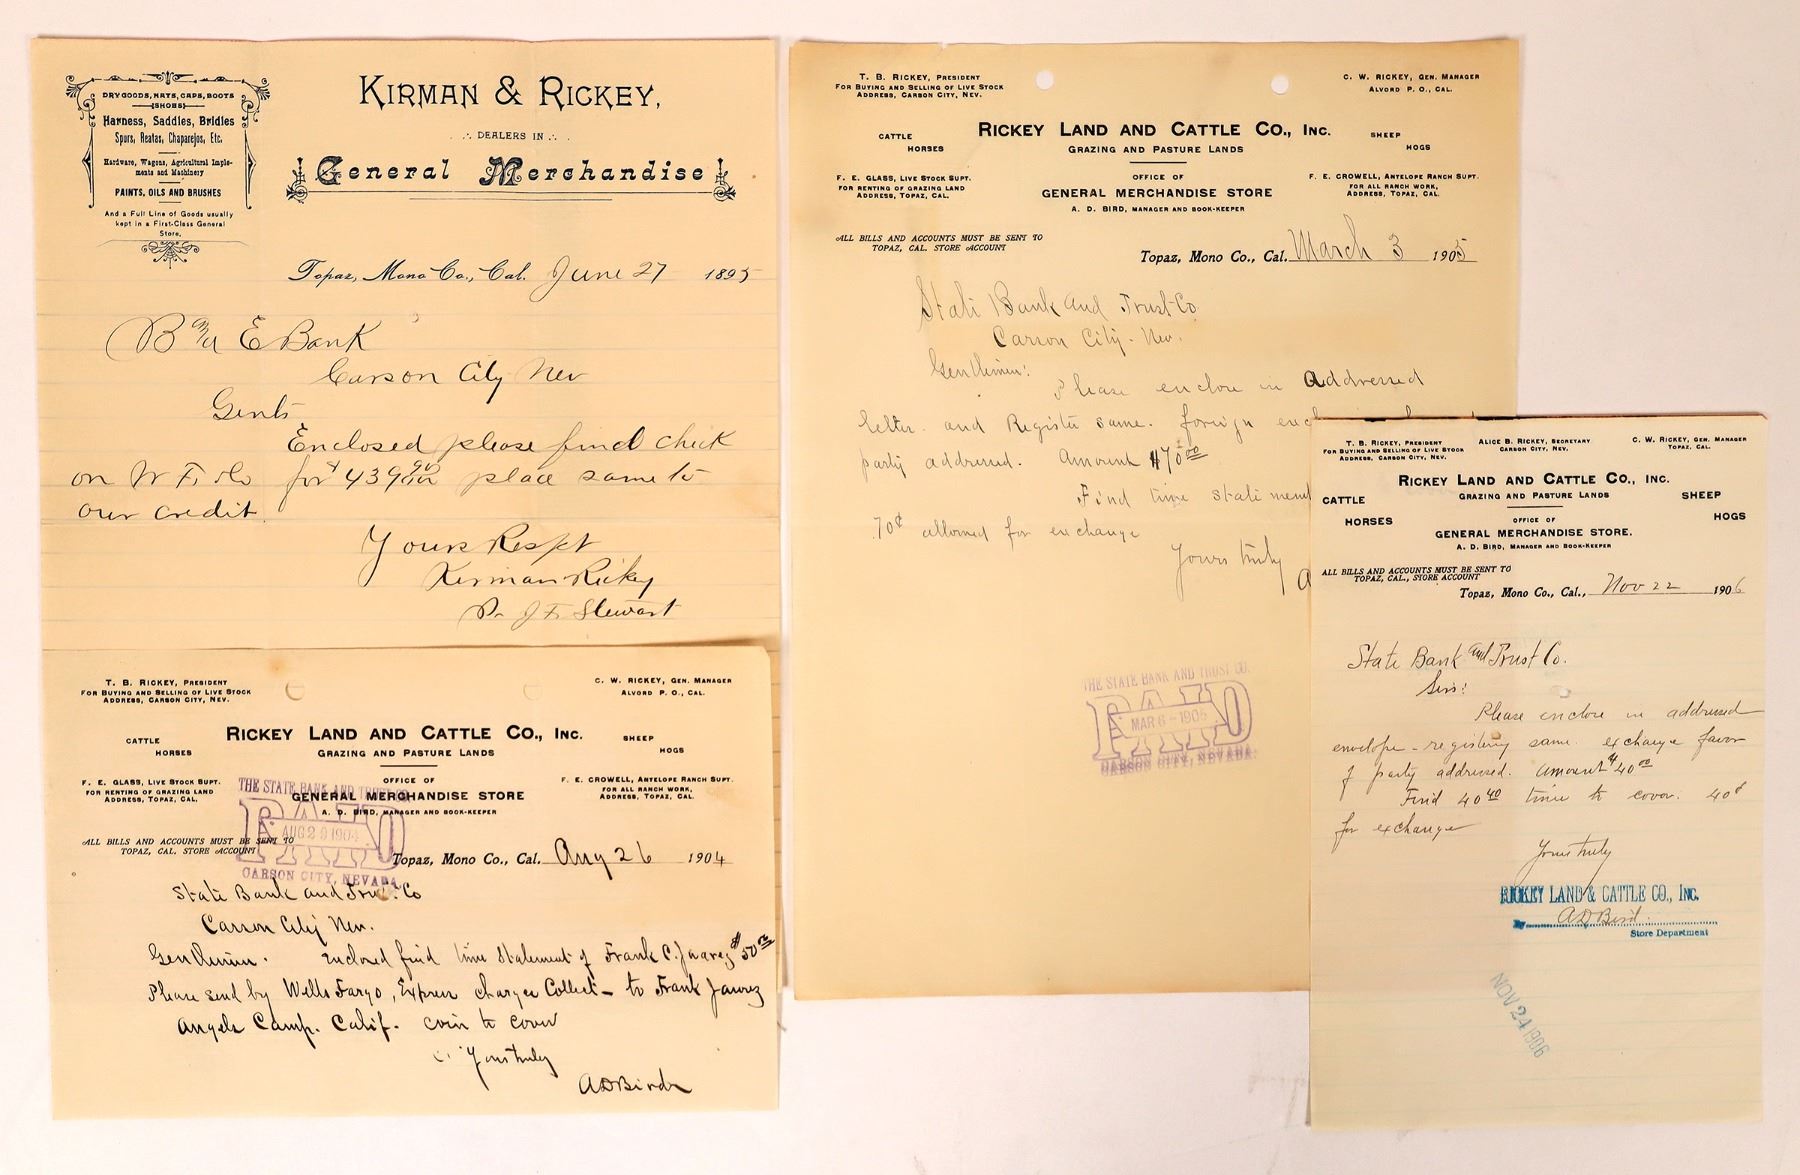 DRY GOODS, HATS, CAPS, BOOTS
SHOES
Harness, Saddles, Bridles
Spurs, Reatas, Chaparejos, Etc.
Hardware, Wagons, Agricultural Imple-
ments and Machinery
PAINTS, OILS AND BRUSHES
And a Full Line of Goods usually
kept in a First-Class General
Store.
KIRMAN & RICKEY,
DEALERS IN
General Merchandise
Topaz, Mono Co., Cal. June 27 1895
B E Bank
Carson City Nev
Gents
Enclosed please find check
on W F & Co for $439 place same to
our credit
Yours Respt
Kirman Rickey
Pr J F Stewart
T. B. RICKEY, PRESIDENT
FOR BUYING AND SELLING OF LIVE STOCK
ADDRESS, CARSON CITY, NEV.
C. W. RICKEY, GEN. MANAGER
ALVORD P. O., CAL.
RICKEY LAND AND CATTLE CO., INC.
CATTLE
HORSES
GRAZING AND PASTURE LANDS
SHEEP
HOGS
F. E. GLASS, LIVE STOCK SUPT.
FOR RENTING OF GRAZING LAND
ADDRESS, TOPAZ, CAL.
OFFICE OF
GENERAL MERCHANDISE STORE
A. D. BIRD, MANAGER AND BOOK-KEEPER
F. E. CROWELL, ANTELOPE RANCH SUPT.
FOR ALL RANCH WORK,
ADDRESS, TOPAZ, CAL.
ALL BILLS AND ACCOUNTS MUST BE SENT TO
TOPAZ, CAL. STORE ACCOUNT
Topaz, Mono Co., Cal. Aug 26 1904
THE STATE BANK AND TRUST CO.
PAID
AUG 29 1904
CARSON CITY, NEVADA.
State Bank and Trust Co
Carson City Nev.
Gentlemen. Enclosed find time statement of Frank C. Juarez $50.00
Please send by Wells Fargo, Express charges Collect - to Frank Juarez
Angels Camp. Calif. coin to cover
Yours truly
A D Bird
T. B. RICKEY, PRESIDENT
FOR BUYING AND SELLING OF LIVE STOCK
ADDRESS, CARSON CITY, NEV.
C. W. RICKEY, GEN. MANAGER
ALVORD P. O., CAL.
RICKEY LAND AND CATTLE CO., INC.
CATTLE
HORSES
GRAZING AND PASTURE LANDS
SHEEP
HOGS
F. E. GLASS, LIVE STOCK SUPT.
FOR RENTING OF GRAZING LAND
ADDRESS, TOPAZ, CAL.
OFFICE OF
GENERAL MERCHANDISE STORE
A. D. BIRD, MANAGER AND BOOK-KEEPER
F. E. CROWELL, ANTELOPE RANCH SUPT.
FOR ALL RANCH WORK,
ADDRESS, TOPAZ, CAL.
ALL BILLS AND ACCOUNTS MUST BE SENT TO
TOPAZ, CAL. STORE ACCOUNT
Topaz, Mono Co., Cal. March 3 1905
State Bank and Trust Co
Carson City. Nev.
Gentlemen:
Please enclose in addressed
letter. and Register same. foreign
party addressed. Amount $70.00
Find time statement
70¢ allowed for exchange
Yours truly
A
THE STATE BANK AND TRUST CO.
PAID
MAR 6 - 1905
CARSON CITY, NEVADA.
T. B. RICKEY, PRESIDENT
FOR BUYING AND SELLING OF LIVE STOCK
ADDRESS, CARSON CITY, NEV.
ALICE B. RICKEY, SECRETARY
CARSON CITY, NEV.
C. W. RICKEY, GEN. MANAGER
TOPAZ, CAL.
RICKEY LAND AND CATTLE CO., INC.
CATTLE
HORSES
GRAZING AND PASTURE LANDS
SHEEP
HOGS
OFFICE OF
GENERAL MERCHANDISE STORE.
A. D. BIRD, MANAGER AND BOOK-KEEPER
ALL BILLS AND ACCOUNTS MUST BE SENT TO
TOPAZ, CAL., STORE ACCOUNT
Topaz, Mono Co., Cal., Nov 22 1906
State Bank and Trust Co.
Sirs:
Please enclose in addressed
envelope - registering same. exchange favor
of party addressed. Amount $40.00
Find 40.40 time to cover. 40¢
for exchange
Yours truly
RICKEY LAND & CATTLE CO., INC.
By A D Bird.
Store Department
NOV 24 1906